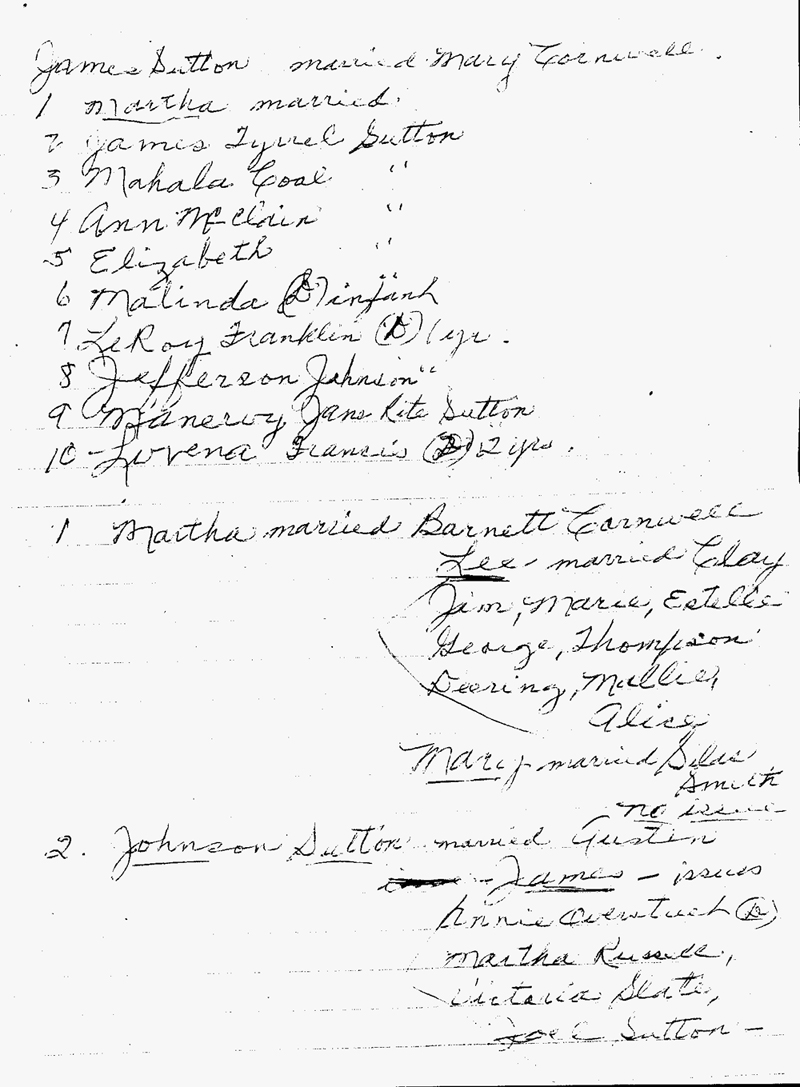 James Sutton married Mary Cornwell.
1 Martha married.
2 James Tyrrel Sutton
3 Mahala Coal "
4 Ann McClain "
5 Elizabeth "
6 Malinda (D) infant
7 LeRoy Franklin (D) 1 yr.
8 Jefferson Johnson "
9 Manervy Jane Rite Sutton
10 - Luvena Francis (D) 2 yrs.
1 Martha married Barnett Cornwell
Lee - married Clay
Jim, Marie, Estelle
George, Thompson
Deering, Mallie,
Alice
Mary - married Silas
Smith
no issue
2. Johnson Sutton married Austin
- James - issues
Annie (D)
Martha Russell,
Victoria Slate,
Joe C Sutton -